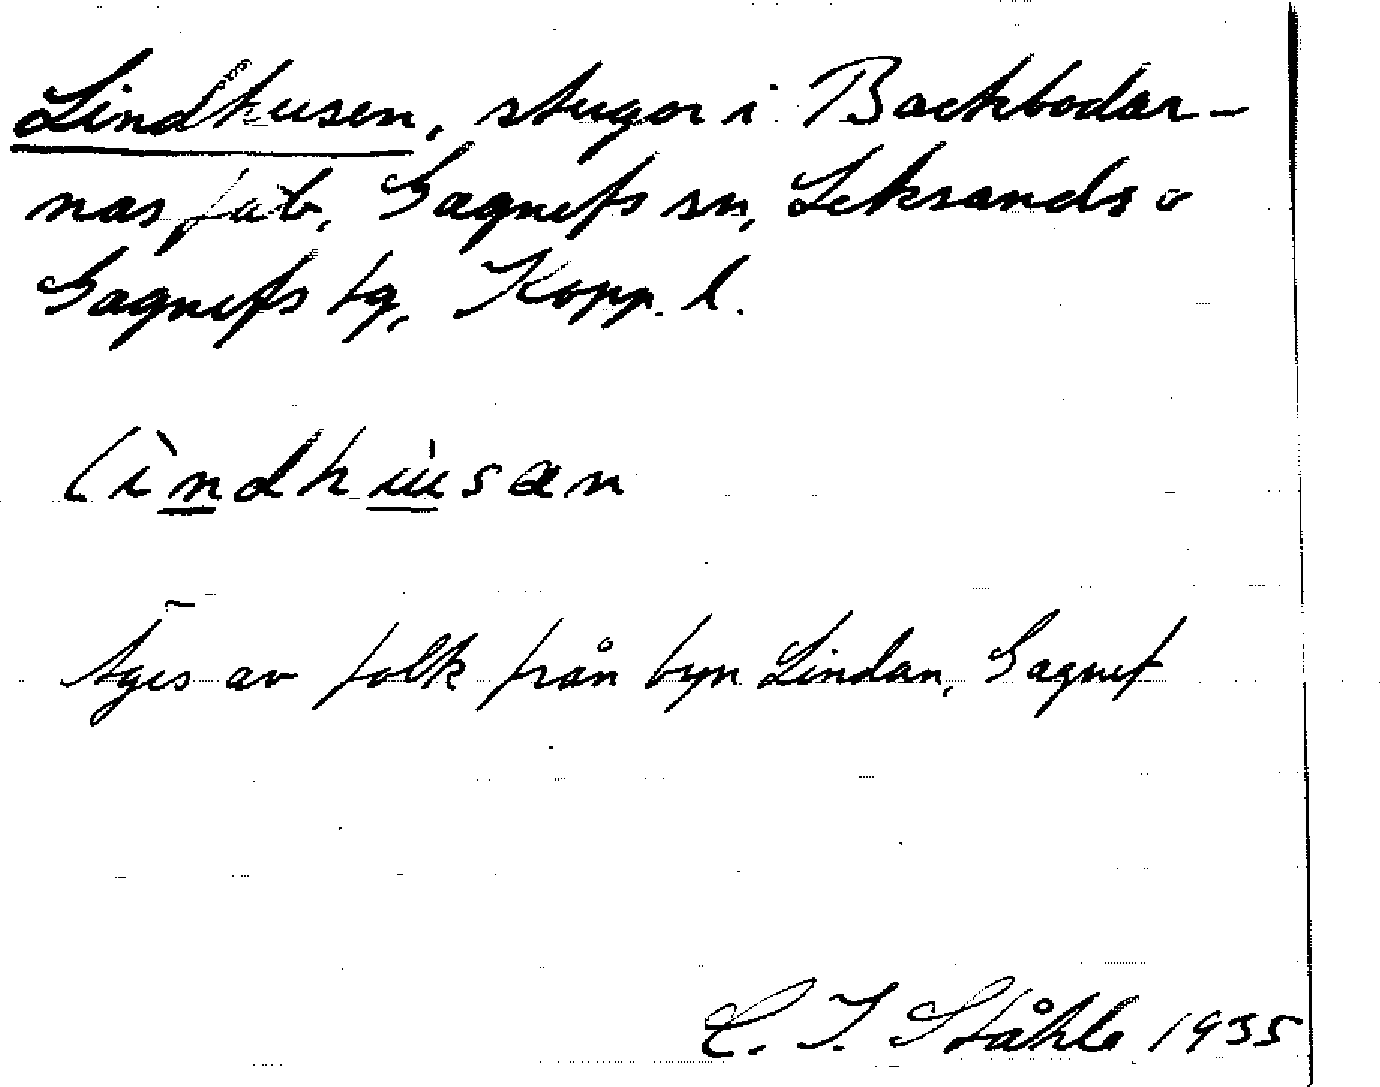 Lindhusen, stugor i Backbodar-
nas fäb., Gagnefs sn, Leksands o
Gagnefs tg, Kopp. l.
lìndhúsæn
Äges av folk från byn Lindan, Gagnef
C. I. Ståhle 1935